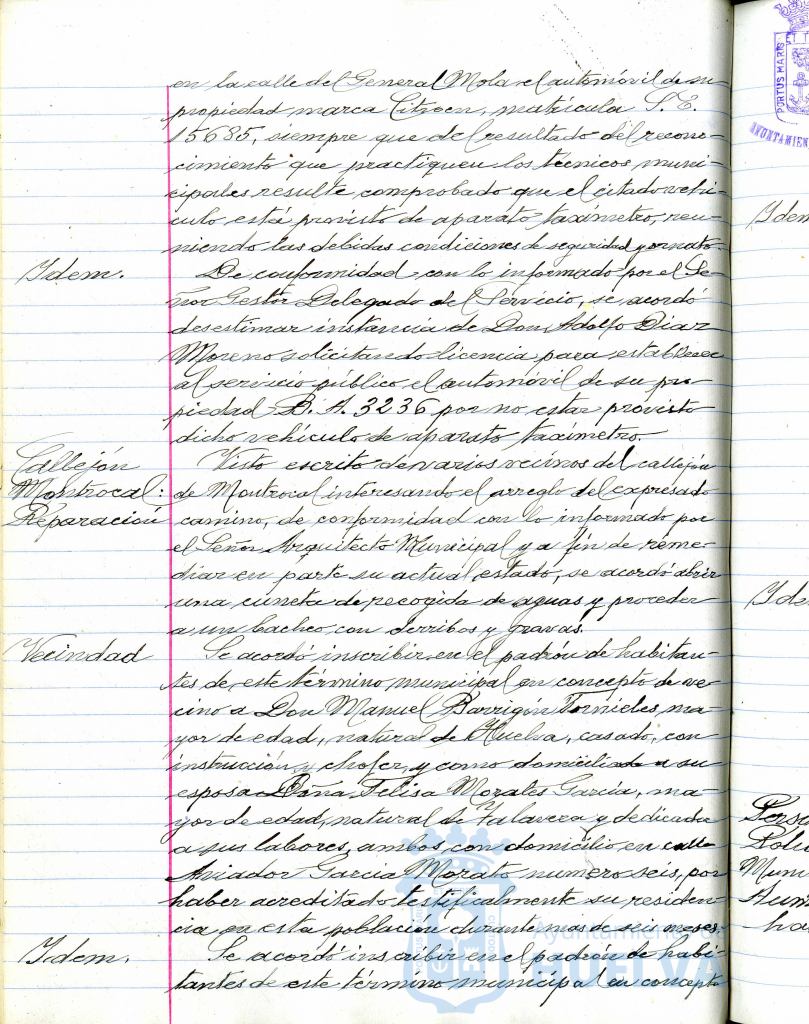 en la calle del General Mola el automóvil de su
propiedad marca Citroen, matrícula S.E.
15635, siempre que del resultado del recono-
cimiento que practiquen los técnicos muni-
cipales resulte comprobado que el citado vehí-
culo está provisto de aparato taxímetro, reu-
niendo las debidas condiciones de seguridad y ornato.
Idem. De conformidad con lo informado por el Se-
ñor Gestor Delegado del Servicio, se acordó
desestimar instancia de Don Adolfo Diaz
Moreno solicitando licencia para establecer
al servicio público el automóvil de su pro-
piedad B.A. 3236 por no estar provisto
dicho vehículo de aparato taxímetro.
Callejón Montrocal: Reparación
Visto escrito de varios vecinos del callejón
de Montrocal interesando el arreglo del expresado
camino, de conformidad con lo informado por
el Señor Arquitecto Municipal y a fin de reme-
diar en parte su actual estado, se acordó abrir
una cuneta de recogida de aguas y proceder
a un bacheo con derribos y gravas.
Vecindad Se acordó inscribir en el padrón de habitan-
tes de este término municipal en concepto de ve-
cino a Don Manuel Barrigón Tornieles, ma-
yor de edad, natural de Huelva, casado, con
instrucción y chofer, y como domiciliada a su
esposa Doña Felisa Morales García, ma-
yor de edad, natural de Talavera y dedicada
a sus labores, ambos con domicilio en calle
Aviador Garcia Morato numero seis, por
haber acreditado testificalmente su residen-
cia en esta población durante mas de seis meses.
Idem. Se acordó inscribir en el padrón de habi-
tantes de este término municipal en concepto
PORTUS MARIS
Idem
Ayuntamiento de
HUELVA